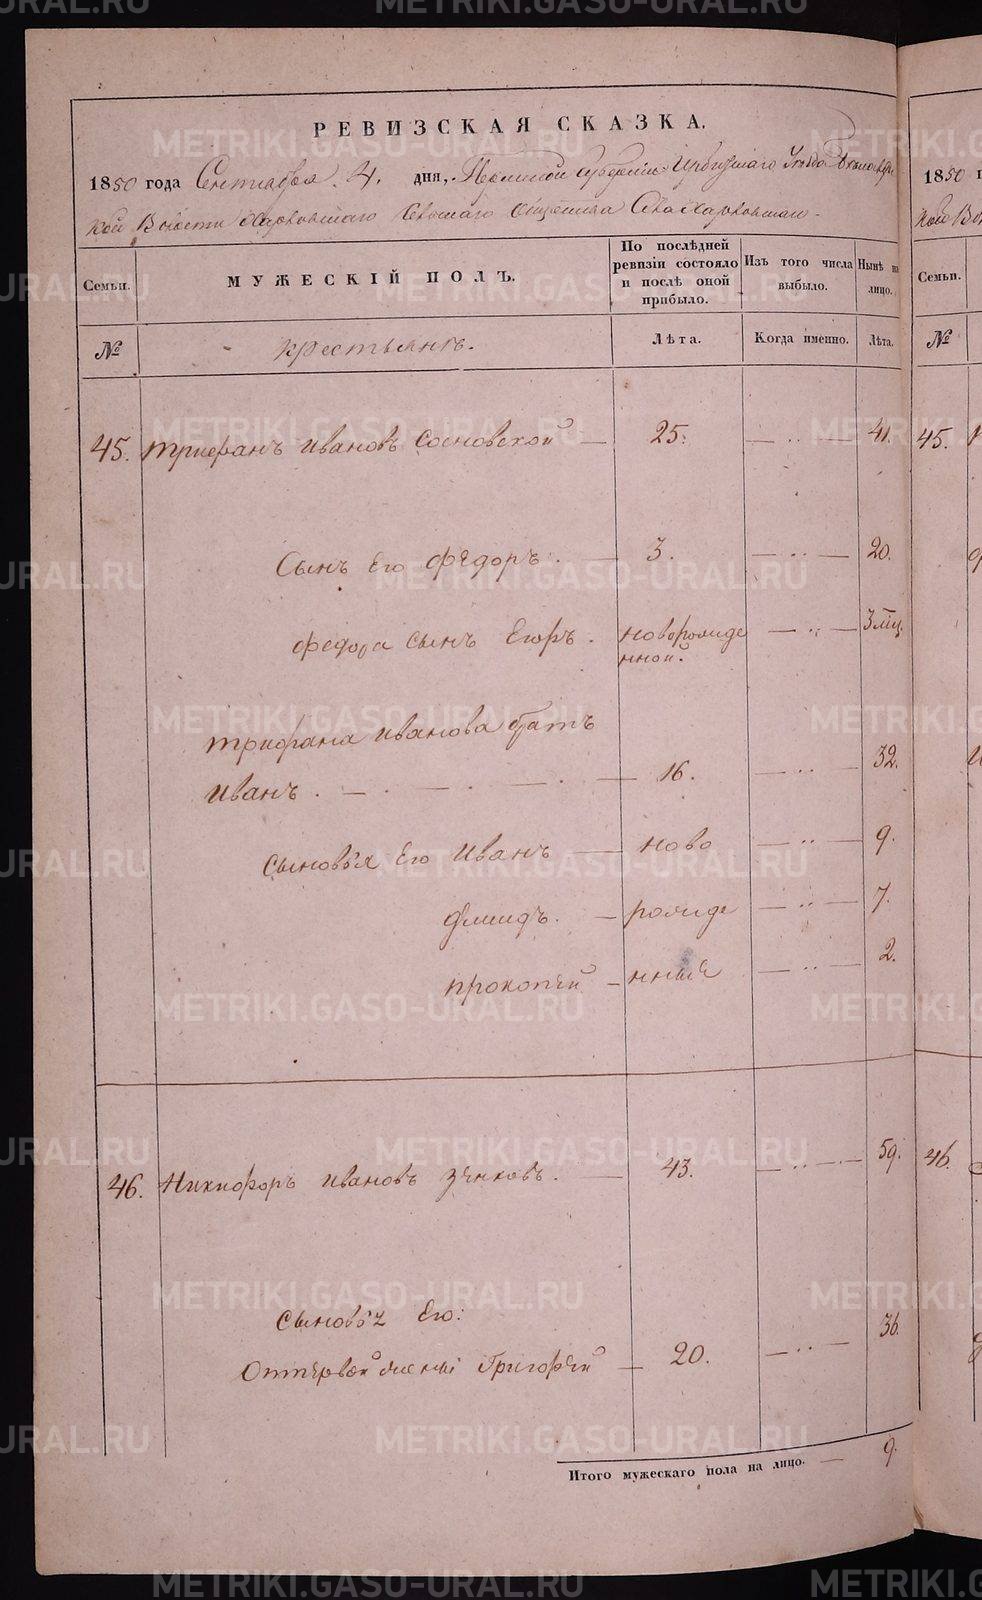 РЕВИЗСКАЯ СКАЗКА.
1850 года Сентября 4. дня, Пермской Губернiи Ирбитскаго Уезда
кой Волости Харловскаго Сельскаго Общества Села Харловскаго
Семьи. МУЖЕСКIЙ ПОЛЪ. По послѣдней ревизiи состояло и послѣ оной прибыло. Изъ того числа выбыло. Нынѣ на лицо.
№ крестьянъ. Лѣта. Когда именно. Лѣта.
45. трифанъ ивановъ Сосновской 25. 41.
Сынъ Его Федоръ. 3. 20.
федора сынъ Егоръ. новорожде 3 мец.
нной.
трифана иванова братъ
иванъ. 16. 32.
сыновья Его Иванъ ново 9.
рожде 7.
прокопей нные 2.
46. Никифоръ ивановъ зенковъ. 43. 59.
сыновья Его:
Отпервой жены Григорей 20. 36.
Итого мужескаго пола на лицо. 9.
1850
Семьи.
№
45.
46.
METRIKI.GASO-URAL.RU